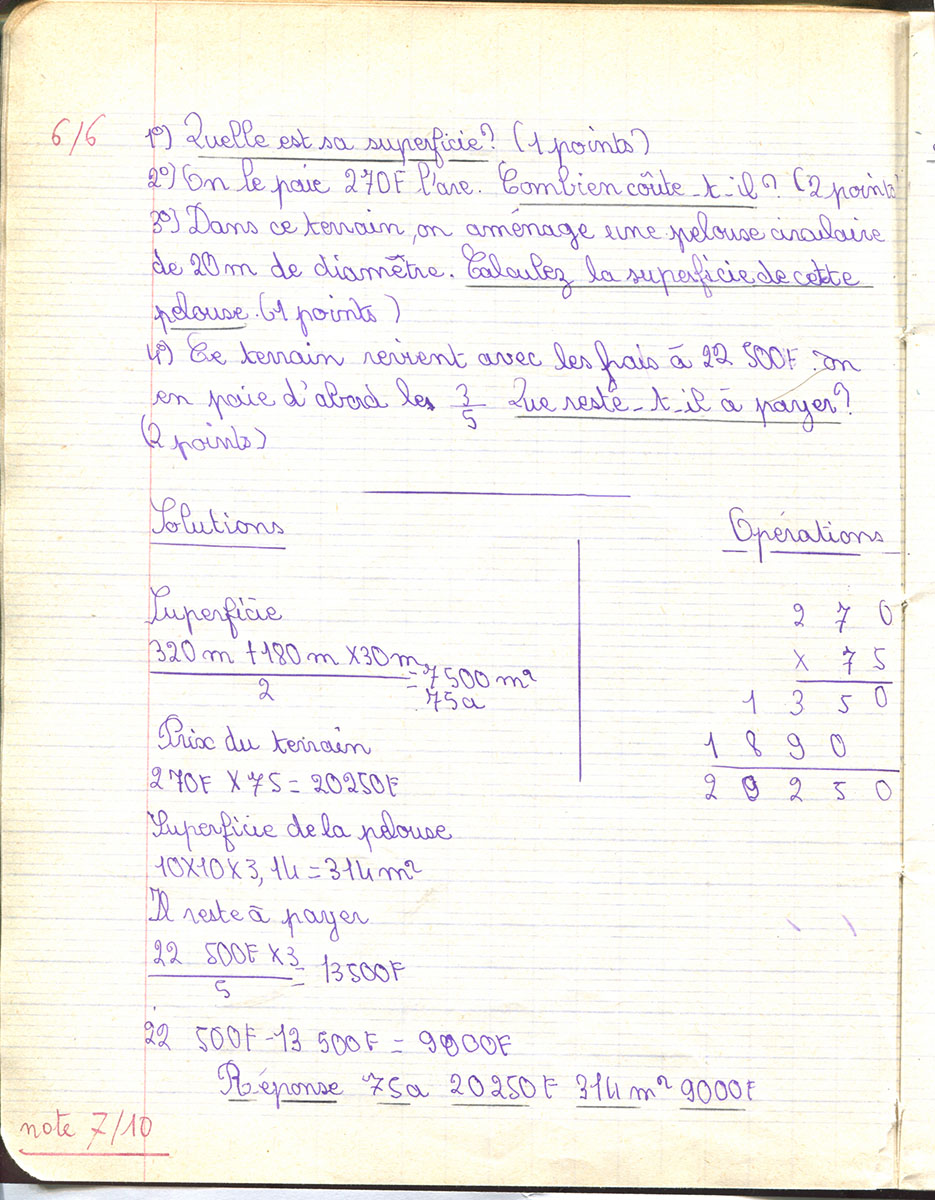 6/6
1º) Quelle est sa superficie? (1 points)
2º) On le paie 270F l'are. Combien coûte-t-il? (2 points)
3º) Dans ce terrain, on aménage une pelouse circulaire
de 20m de diamêtre. Calculez la superficie de cette
pelouse. (1 points)
4º) Ce terrain revient avec les frais à 22 500F. On
en paie d'abord les 3/5 Que reste-t-il à payer?
(2 points)
Solutions
Opérations
Superficie
320m + 180m × 30m
2
= 7500m²
75a
Prix du terrain
270F × 75 = 20250F
Superficie de la pelouse
10×10×3,14 = 314m²
Il reste à payer
22 500F × 3
5
= 13500F
22 500F - 13 500F = 9000F
Réponse 75a 20250F 314m² 9000F
270
× 75
1350
1890
20250
note 7/10